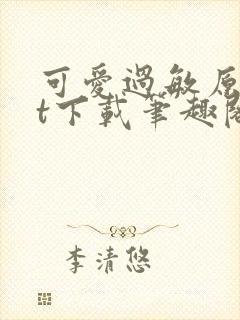 可愛過敏原
t下載筆趣閣
李清悠